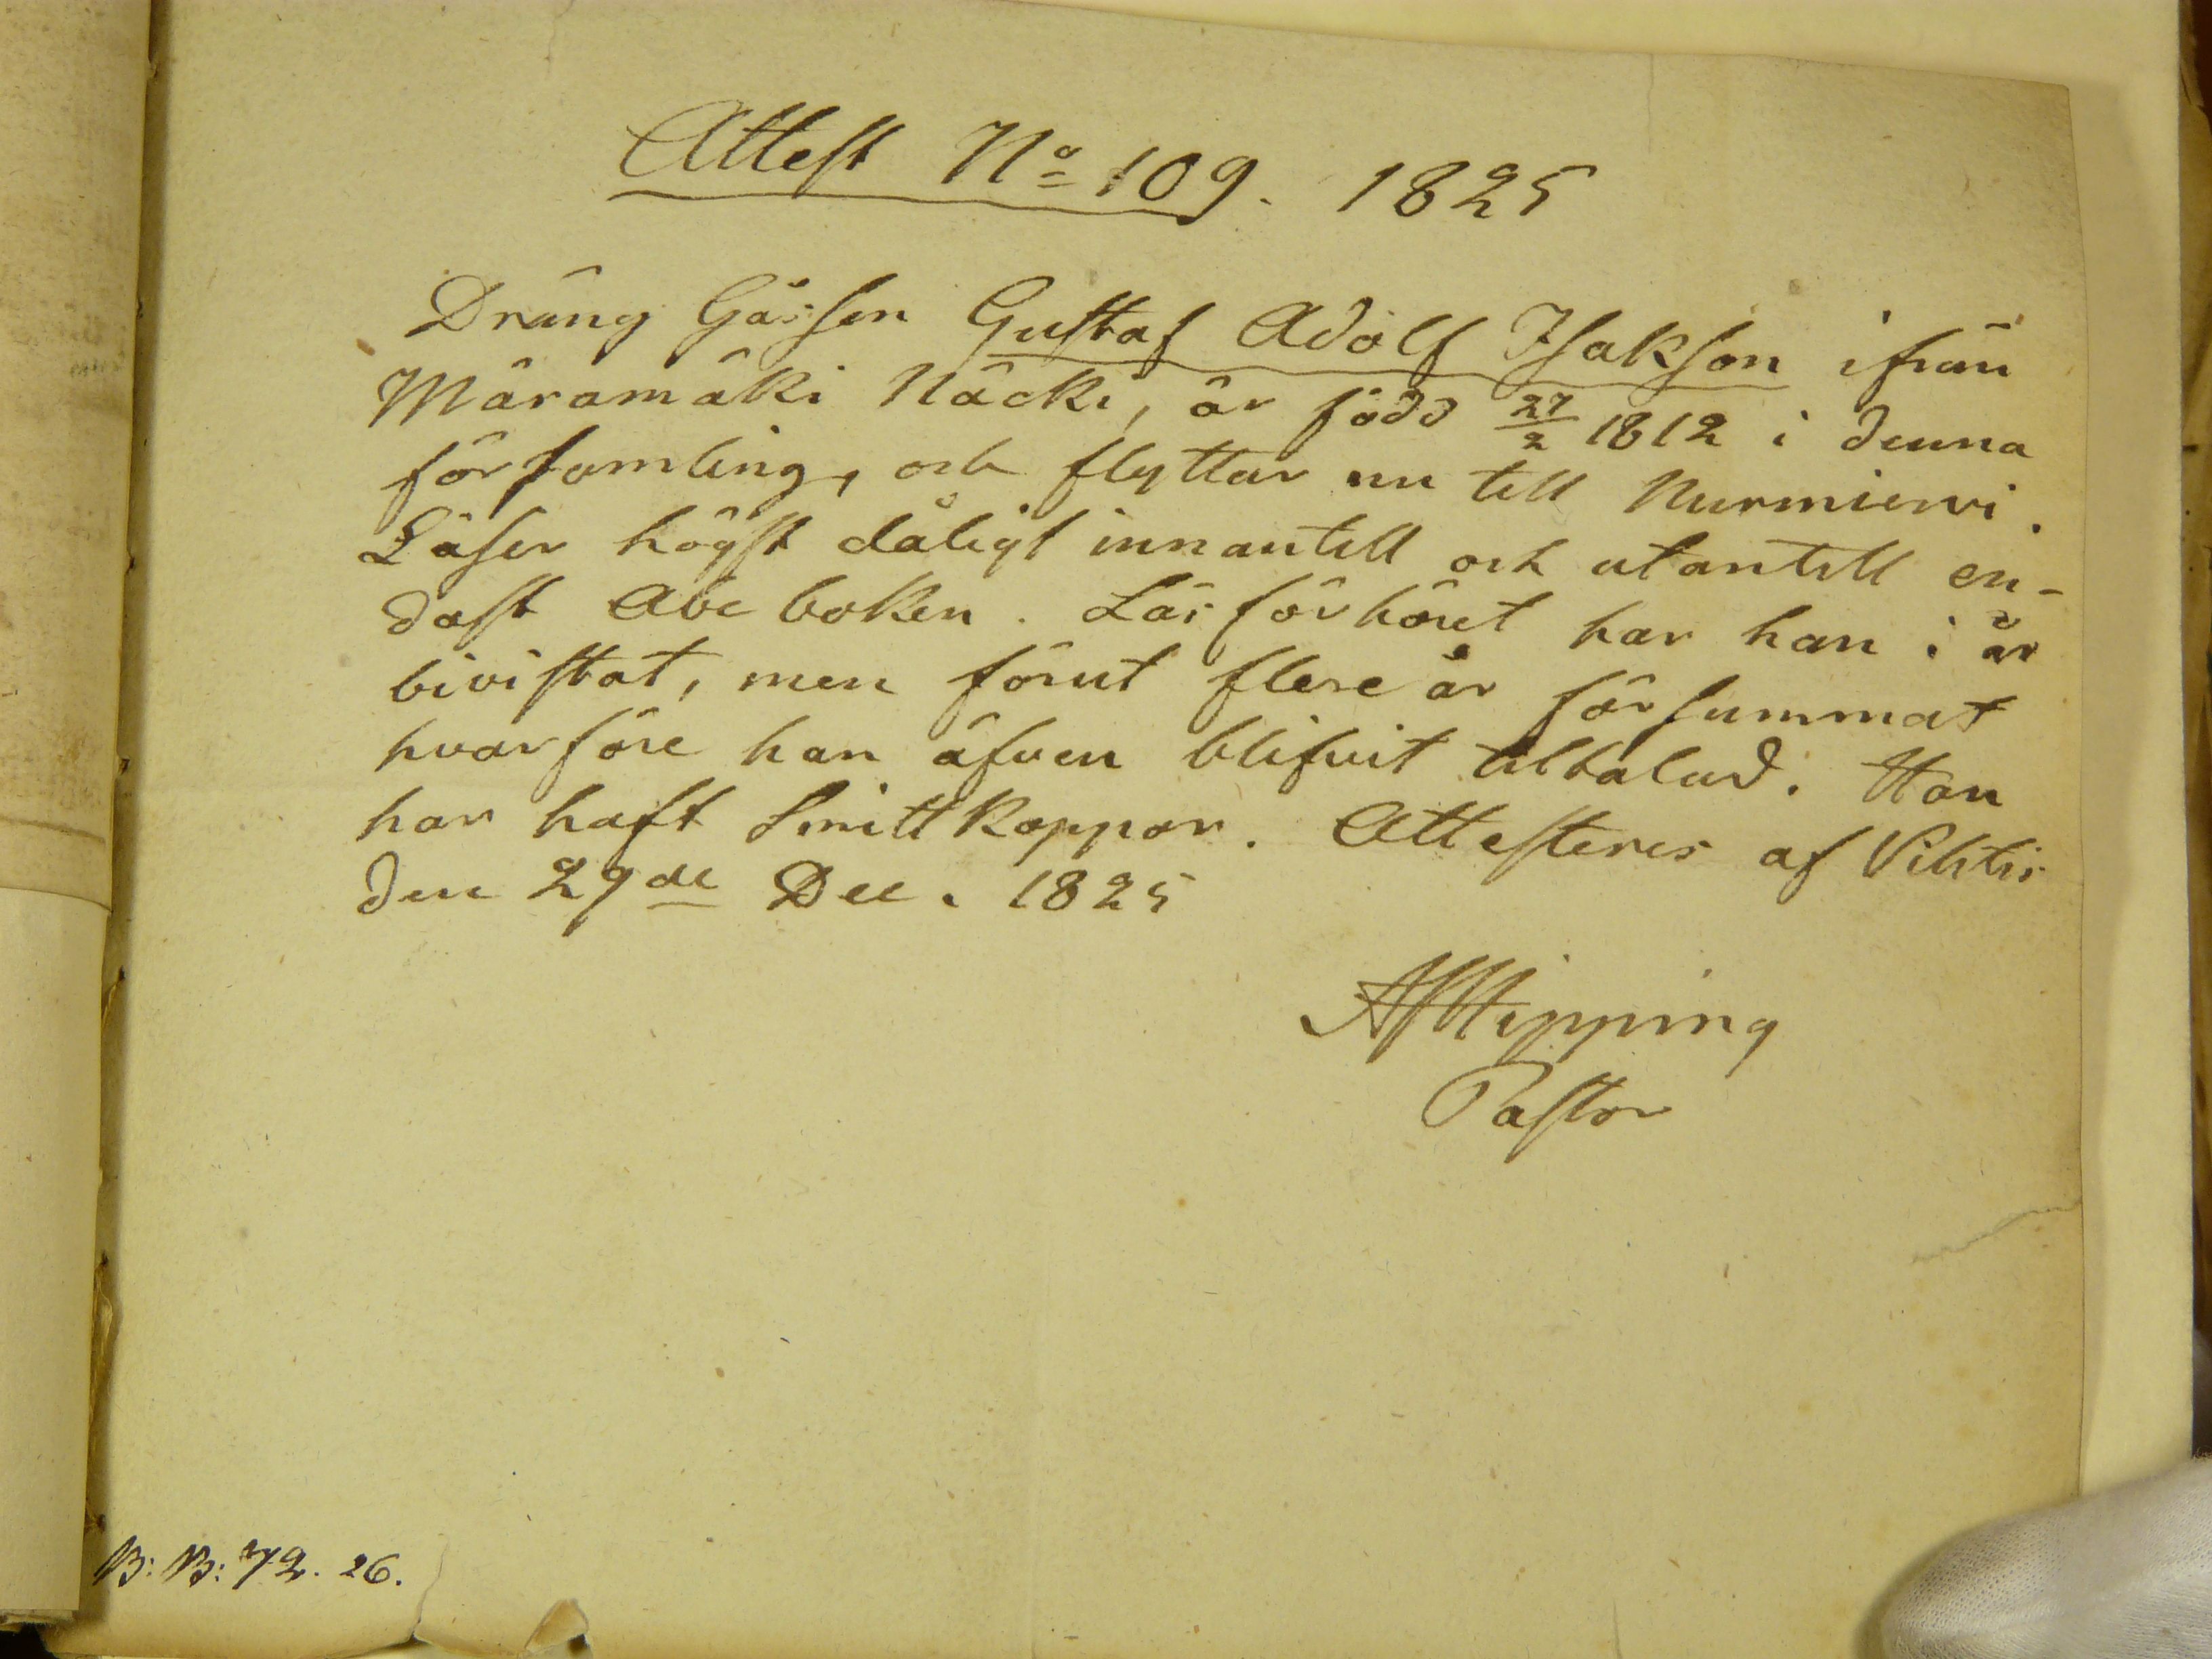 Attest No 109. 1825
Dräng Gåssen Gustaf Adolf Isakson ifrån
Märamäki Näcki, är född 27/2 1812 i denna
församling, och flyttar nu till Nurmierwi.
Läser högst dåligt innantill och utantill en-
dast Abc boken. Läsförhöret har han i år
bivistat, men förut flere år försummat
hvarföre han äfven blifvit tilltalad. Han
har haft Smittkoppor. Attesteres af Vihtis
den 29de Dec. 1825
AJHipping
Pastor
B: B: 72. 26.